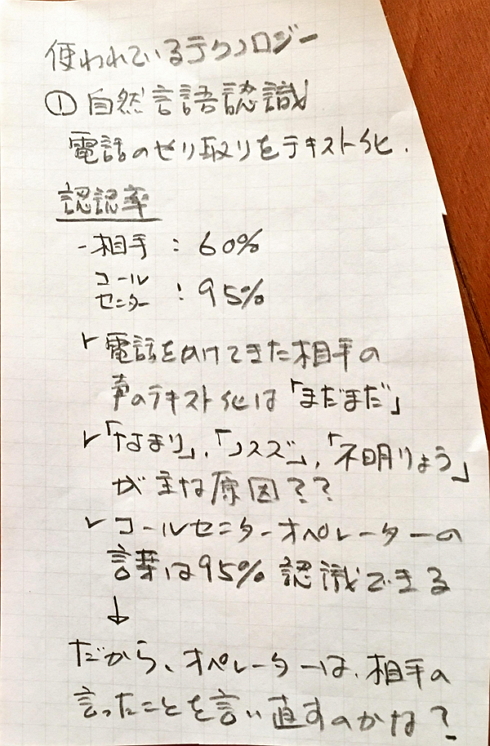 使われているテクノロジー
① 自然言語認識
電話のやり取りをテキスト化.
認認率
- 相手 : 60%
コール
センター : 95%
電話をかけてきた相手の
声のテキスト化は「まだまだ」
「なまり」,「ノスズ」,「不明りょう」
が主な原因??
コールセンターオペレーターの
言葉は95%認識できる
↓
だから、オペレーターは、相手の
言ったことを言い直すのかな?